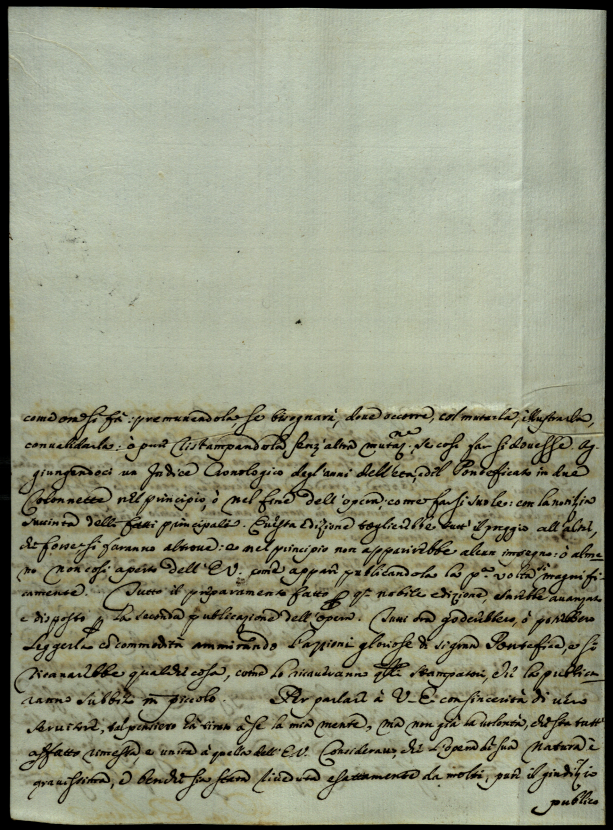 come ora si fà: premunendola, se bisognarà, dove occorre, col mutarla, illustrarla,
convalidarla: ò pure ristampandola senz'altra mutaz.ne, se così far si dovesse. Ag-
giungendoci un Indice Cronologico degl'anni dell'età, e del Pontificato in due
Colonnette nel principio, ò nel fine dell'opera, come far si suole: con la notizia
succinta delli fatti principali. Questa edizione toglierebbe tutt' il preggio all'altri,
che forse si faranno altrove: e nel principio non apparirebbe alcun impegno: ò alme-
no non così aperto dell'E.V. come appari publicandola la p.a volta sì magnifi-
camente. Tutto il preparamento fatto p q.a nobile edizione, sarebbe avanzato
e disposto p la seconda publicazione dell'opera. Tutti ora goderebbero, ò potrebbero
leggerla con commodità ammirando l'azzioni gloriose di sì gran Pontefice, e si
ricavarebbe qualche cosa, come lo ricavaranno quelli Stampatori, che la publica-
ranno subbito in piccolo. Per parlare à V.E. con sincerità di vero
servitore, tal pensiero hà tirato à se la mia mente, ma non già la volontà, che sta tutt'
affatto rimessa, e unita à quella dell'E.V. Consideravo, che l'opera di sua natura è
gravissima, e benche sia stata riveduta esattamente da molti, pure il giudizio
publico